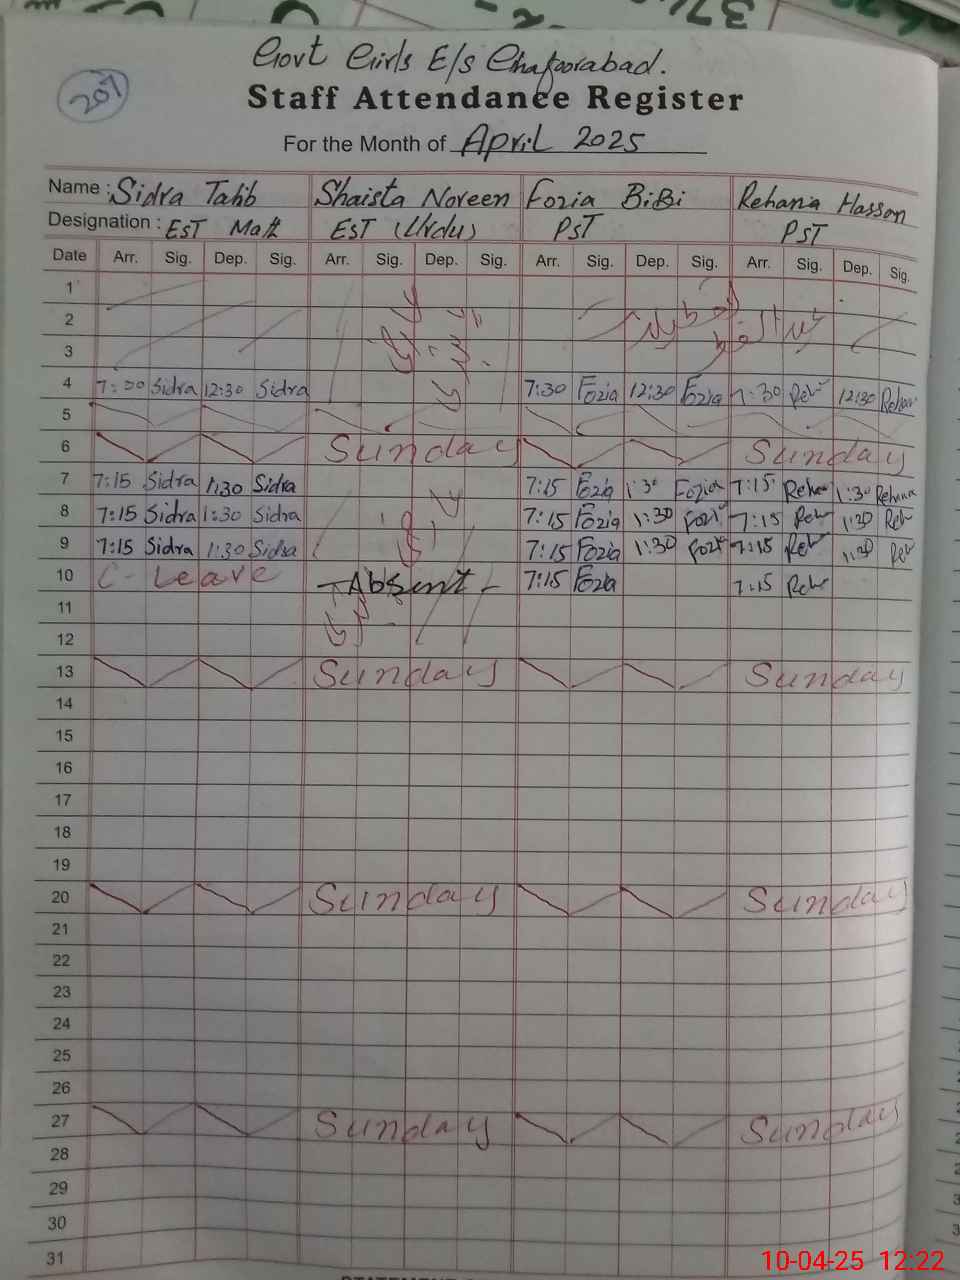 Govt Girls E/s Ghafoorabad.
207
Staff Attendance Register
For the Month of April 2025
Name : Sidra Talib Shaista Noreen Fozia BiBi Rehana Hassan
Designation : EST Math EST (Urdu) PST PST
Date Arr. Sig. Dep. Sig. Arr. Sig. Dep. Sig. Arr. Sig. Dep. Sig. Arr. Sig. Dep. Sig.
1
2
3
4 7:30 Sidra 12:30 Sidra 7:30 Fozia 12:30 Fozia 7:30 Reh 12:30 Rehan
5
6 Sunday Sunday
7 7:15 Sidra 1:30 Sidra 7:15 Fozia 1:30 Fozia 7:15 Reha 1:30 Rehana
8 7:15 Sidra 1:30 Sidra 7:15 Fozia 1:30 Fozi 7:15 Reh 1:30 Reh
9 7:15 Sidra 1:30 Sidra 7:15 Fozia 1:30 Fozi 7:15 Reh 1:30 Reh
10 C-Leave Absent 7:15 Fozia 7:15 Reh
11
12
13 Sunday Sunday
14
15
16
17
18
19
20 Sunday Sunday
21
22
23
24
25
26
27 Sunday Sunday
28
29
30
31
10-04-25 12:22